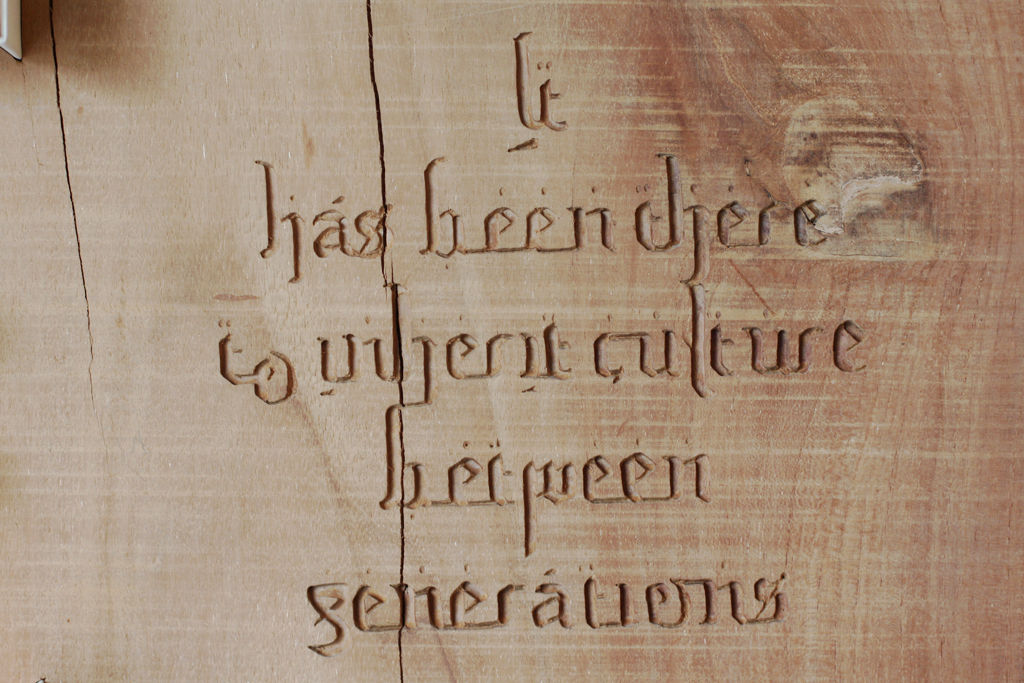 It
has been there
to inherit culture
between
generations